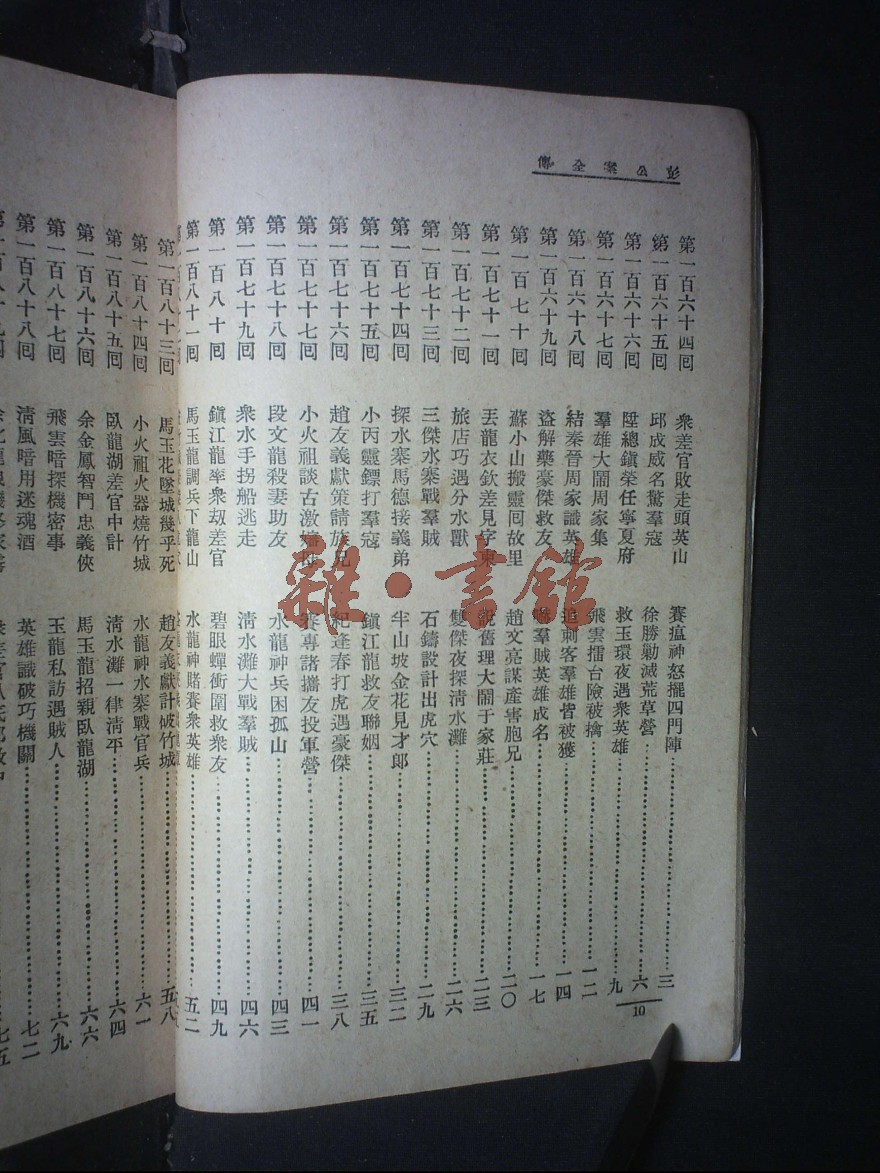 彭公案全傳
第一百六十四回 衆差官敗走頭英山 賽瘟神怒擺四門陣 三
第一百六十五回 邱成威名驚羣寇 徐勝勦滅荒草營 六
第一百六十六回 陞總鎭榮任寧夏府 救玉環夜遇衆英雄 九
第一百六十七回 羣雄大鬧周家集 飛雲擂台險被擒 一二
第一百六十八回 結秦晉周家讖英雄 追刺客羣雄皆被獲 一四
第一百六十九回 盜解藥豪傑救友 羣賊英雄成名 一七
第一百七十回 蘇小山搬靈回故里 趙文亮謀產害胞兄 二〇
第一百七十一回 丟龍衣欽差見字柬 說舊理大鬧于家莊 二三
第一百七十二回 旅店巧遇分水獸 雙傑夜探淸水灘 二六
第一百七十三回 三傑水寨戰羣賊 石鑄設計出虎穴 二九
第一百七十四回 探水寨馬德接義弟 半山坡金花見才郎 三二
第一百七十五回 小丙靈鏢打羣寇 鎭江龍救友聯姻 三五
第一百七十六回 趙友義獻策請族兄 紀逢春打虎遇豪傑 三八
第一百七十七回 小火祖談古激 賽專諸攜友投軍營 四一
第一百七十八回 段文龍殺妻助友 水龍神兵困孤山 四三
第一百七十九回 衆水手拐船逃走 淸水灘大戰羣賊 四六
第一百八十回 鎭江龍率衆刼差官 碧眼蟬衝圍救衆友 四九
第一百八十一回 馬玉龍調兵下龍山 水龍神賭賽衆英雄 五二
第一百八十三回 馬玉花墜城幾乎死 趙友義獻計破竹城 五八
第一百八十四回 小火祖火器燒竹城 水龍神水寨戰官兵 六一
第一百八十五回 臥龍湖差官中計 淸水灘一律淸平 六四
第一百八十六回 余金鳳智鬥忠義俠 馬玉龍招親臥龍湖 六六
第一百八十七回 飛雲暗探機密事 玉龍私訪遇賊人 六九
第一百八十八回 淸風暗用迷魂酒 英雄識破巧機關 七二
七五
10
雜·書館